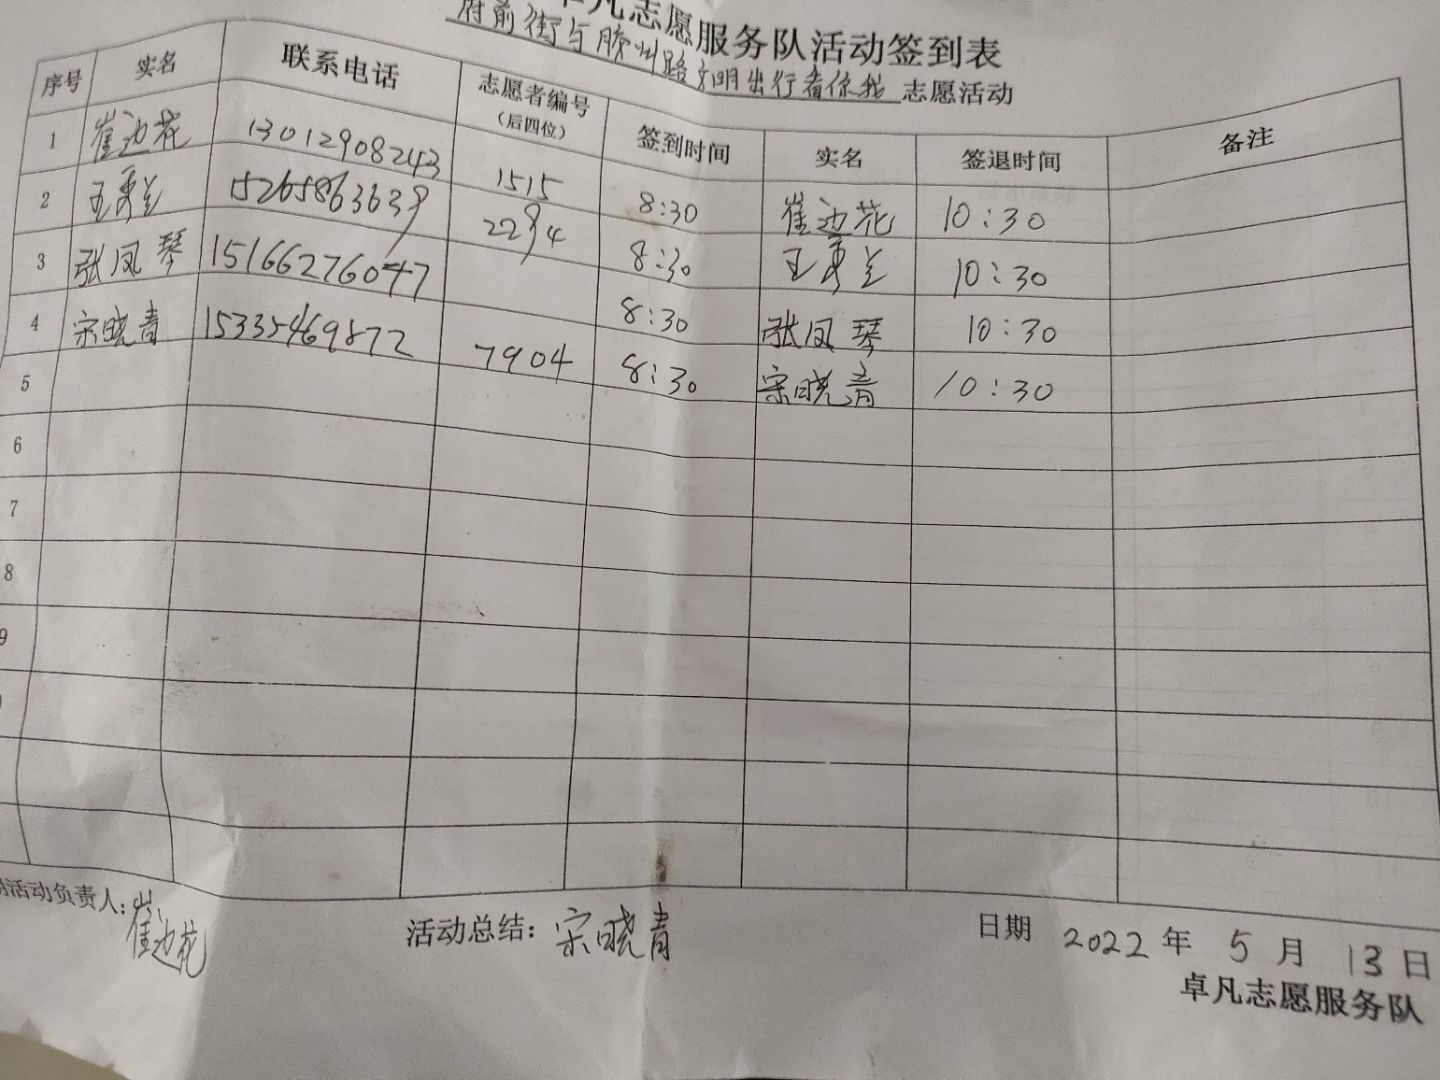 卓凡志愿服务队活动签到表
府前街与胶州路文明出行看你我 志愿活动
序号 实名 联系电话 志愿者编号 (后四位) 签到时间 实名 签退时间 备注
1 崔边花 13012908243 1515 8:30 崔边花 10:30
2 王勇兰 15265863639 2294 8:30 王勇兰 10:30
3 张凤琴 15166276047 8:30 张凤琴 10:30
4 宋晓青 15335469872 7904 8:30 宋晓青 10:30
5
6
7
8
9
活动负责人:崔边花 活动总结:宋晓青 日期 2022年5月13日
卓凡志愿服务队